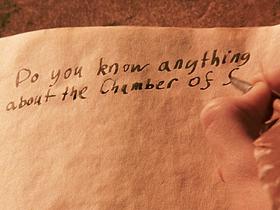 Do you know anything
about the Chamber of S